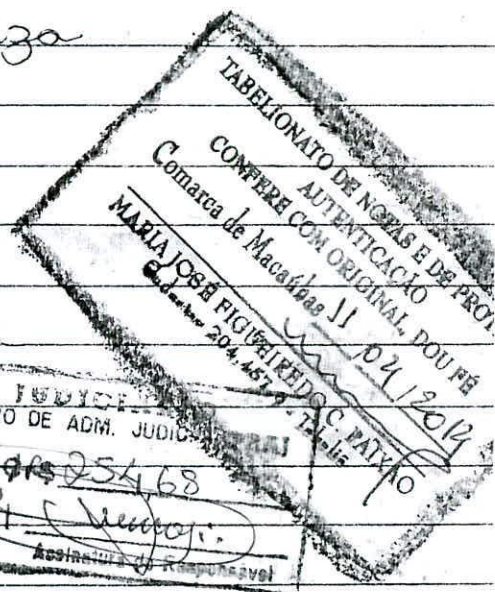 TABELIONATO DE NOTAS E DE PROT
AUTENTICAÇÃO
CONFERE COM ORIGINAL, DOU FÉ
Comarca de Macaúbas 11 / 04 / 2012
MARIA JOSÉ FIGUEIREDO C. PAIXÃO
204.457
O DE ADM. JUDIC
254,68
Assinatura do Responsável